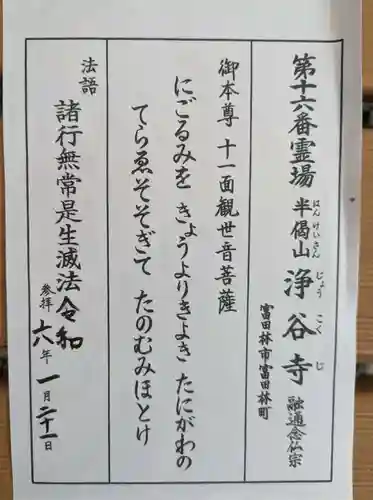 第十六番霊場 半偈山 浄谷寺 融通念仏宗
はんげいさん じょうこくじ
富田林市富田林町
御本尊 十一面観世音菩薩
にごるみを きょうよりきよき たにがわの
てらゑそそぎて たのむみほとけ
法語 諸行無常是生滅法
参拝 令和六年一月二十一日